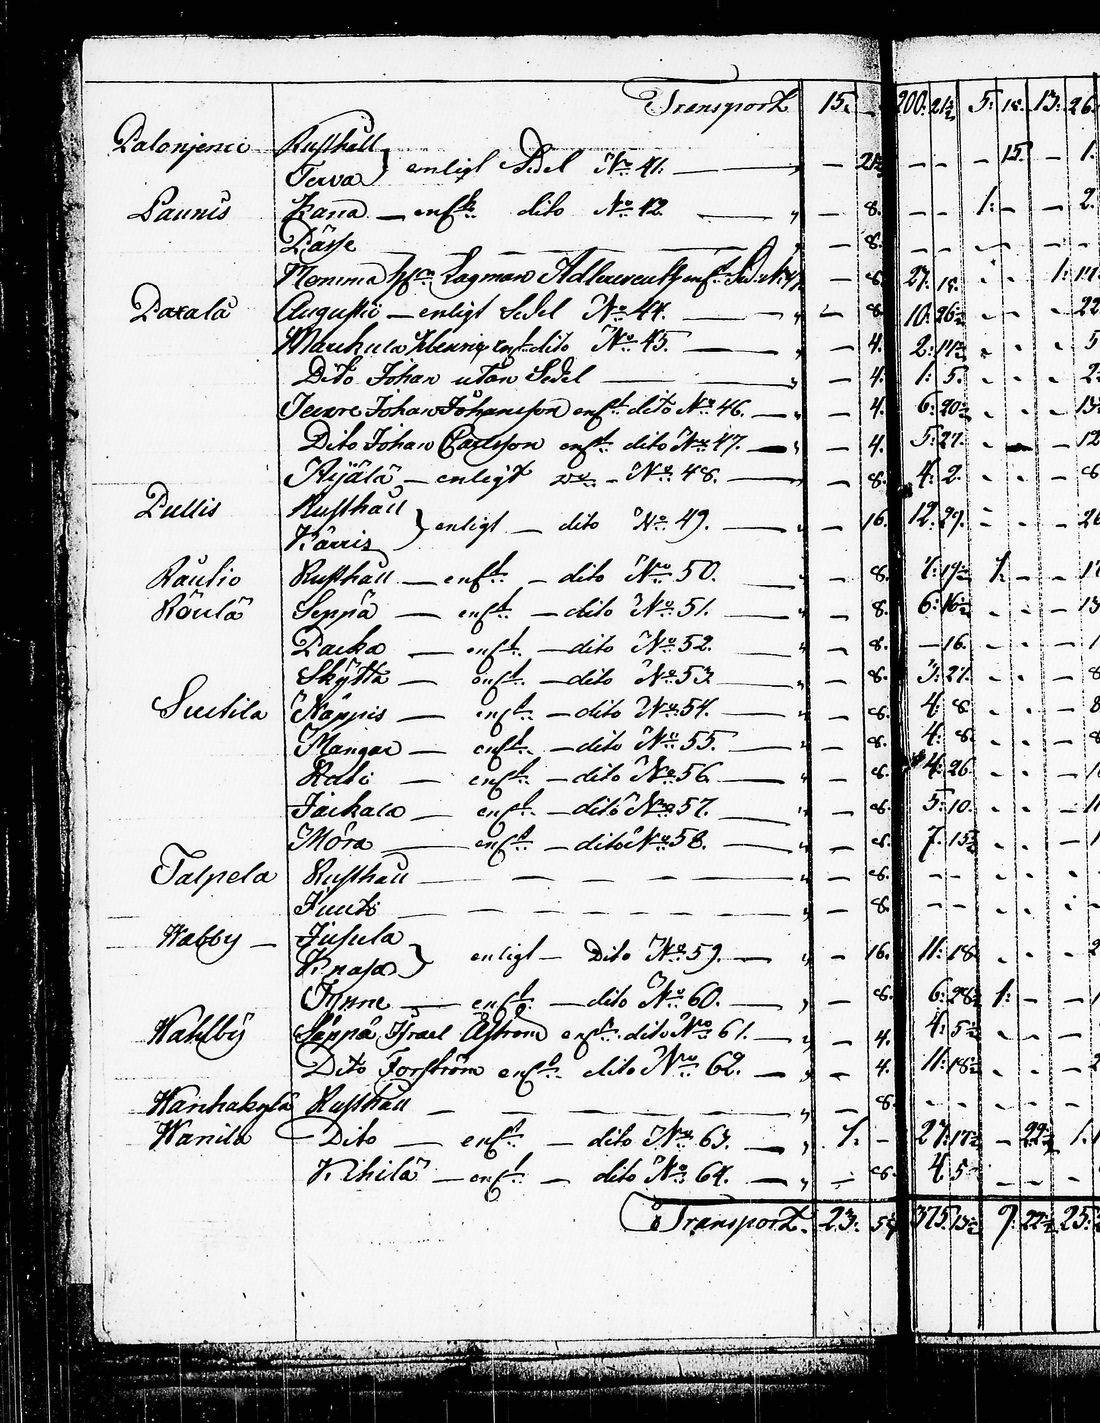 Transport 15. 200. 21½ 5: 18. 13. 26
Palonjenni Rusthåll
Terva } enligt Sedel No 41. — 21½ — — — 15. — 1.
Launis Kana — enligt dito No 42. — 8. — — 1: — — 2.
Pässe — 8. — — — — — —
Nemma Lagman Adlercreutz — 8. 27. 18. 1:
Paxala Augusti — enligt Sedel No 44. — 8. 10. 26½ 22
Marchula enligt dito No 45. — 4. 2: 5
Dito Johan utan Sedel — 4. 1: 5. 2
Juvre Johan Johansson enligt dito No 46. — 4. 6: 20½ 13
Dito Johan Carlsson enligt dito No 47. — 4. 5: 27. 12
Kijälä — enligt do No 48. — 8. 4: 2. 8
Pullis Rusthåll
Kärris } enligt — dito No 49. — 16. 12: 29. 26
Räulio Rusthåll — enligt — dito No 50. — 8. 7: 1: — —
Röulä Seppä — enligt — dito No 51. — 8. 6: 16½ 13
Packa — enligt — dito No 52. — 8. — 16.
Skÿttä — enligt — dito No 53. — 8. 3: 27. 8
Suutila Näppis — enligt — dito No 54. — 8. 4: 8. 8
Mangar — enligt — dito No 55. — 8. 4: 8. 8
Rati — enligt — dito No 56. — 8. 4: 26.
Jackala — enligt — dito No 57. — 8. 5: 10.
Möra — enligt — dito No 58. — 8. 7. 15½
Talpela Rusthåll — 8. — —
Juuti — 8. — —
Wabby — Jusula
Knapa } enligt — Dito No 59. — 16. 11: 18.
Tynne — enligt — dito No 60. — 8. 6: 28½ 1: —
Wahlbÿ Seppä Israel Åström enligt dito No 61. — 4. 4: 5½
Dito Forström enligt dito No 62. — 4. 11: 18½
Wanhakylä Rusthåll — 8. — —
Wanila Dito — enligt — dito No 63. 1. — 27: 17½ — 22½ 1:
Kihilä — enligt — dito No 64. — 8. 4 5
Transport. 23. 375. 13½ 9: 22½ 25: